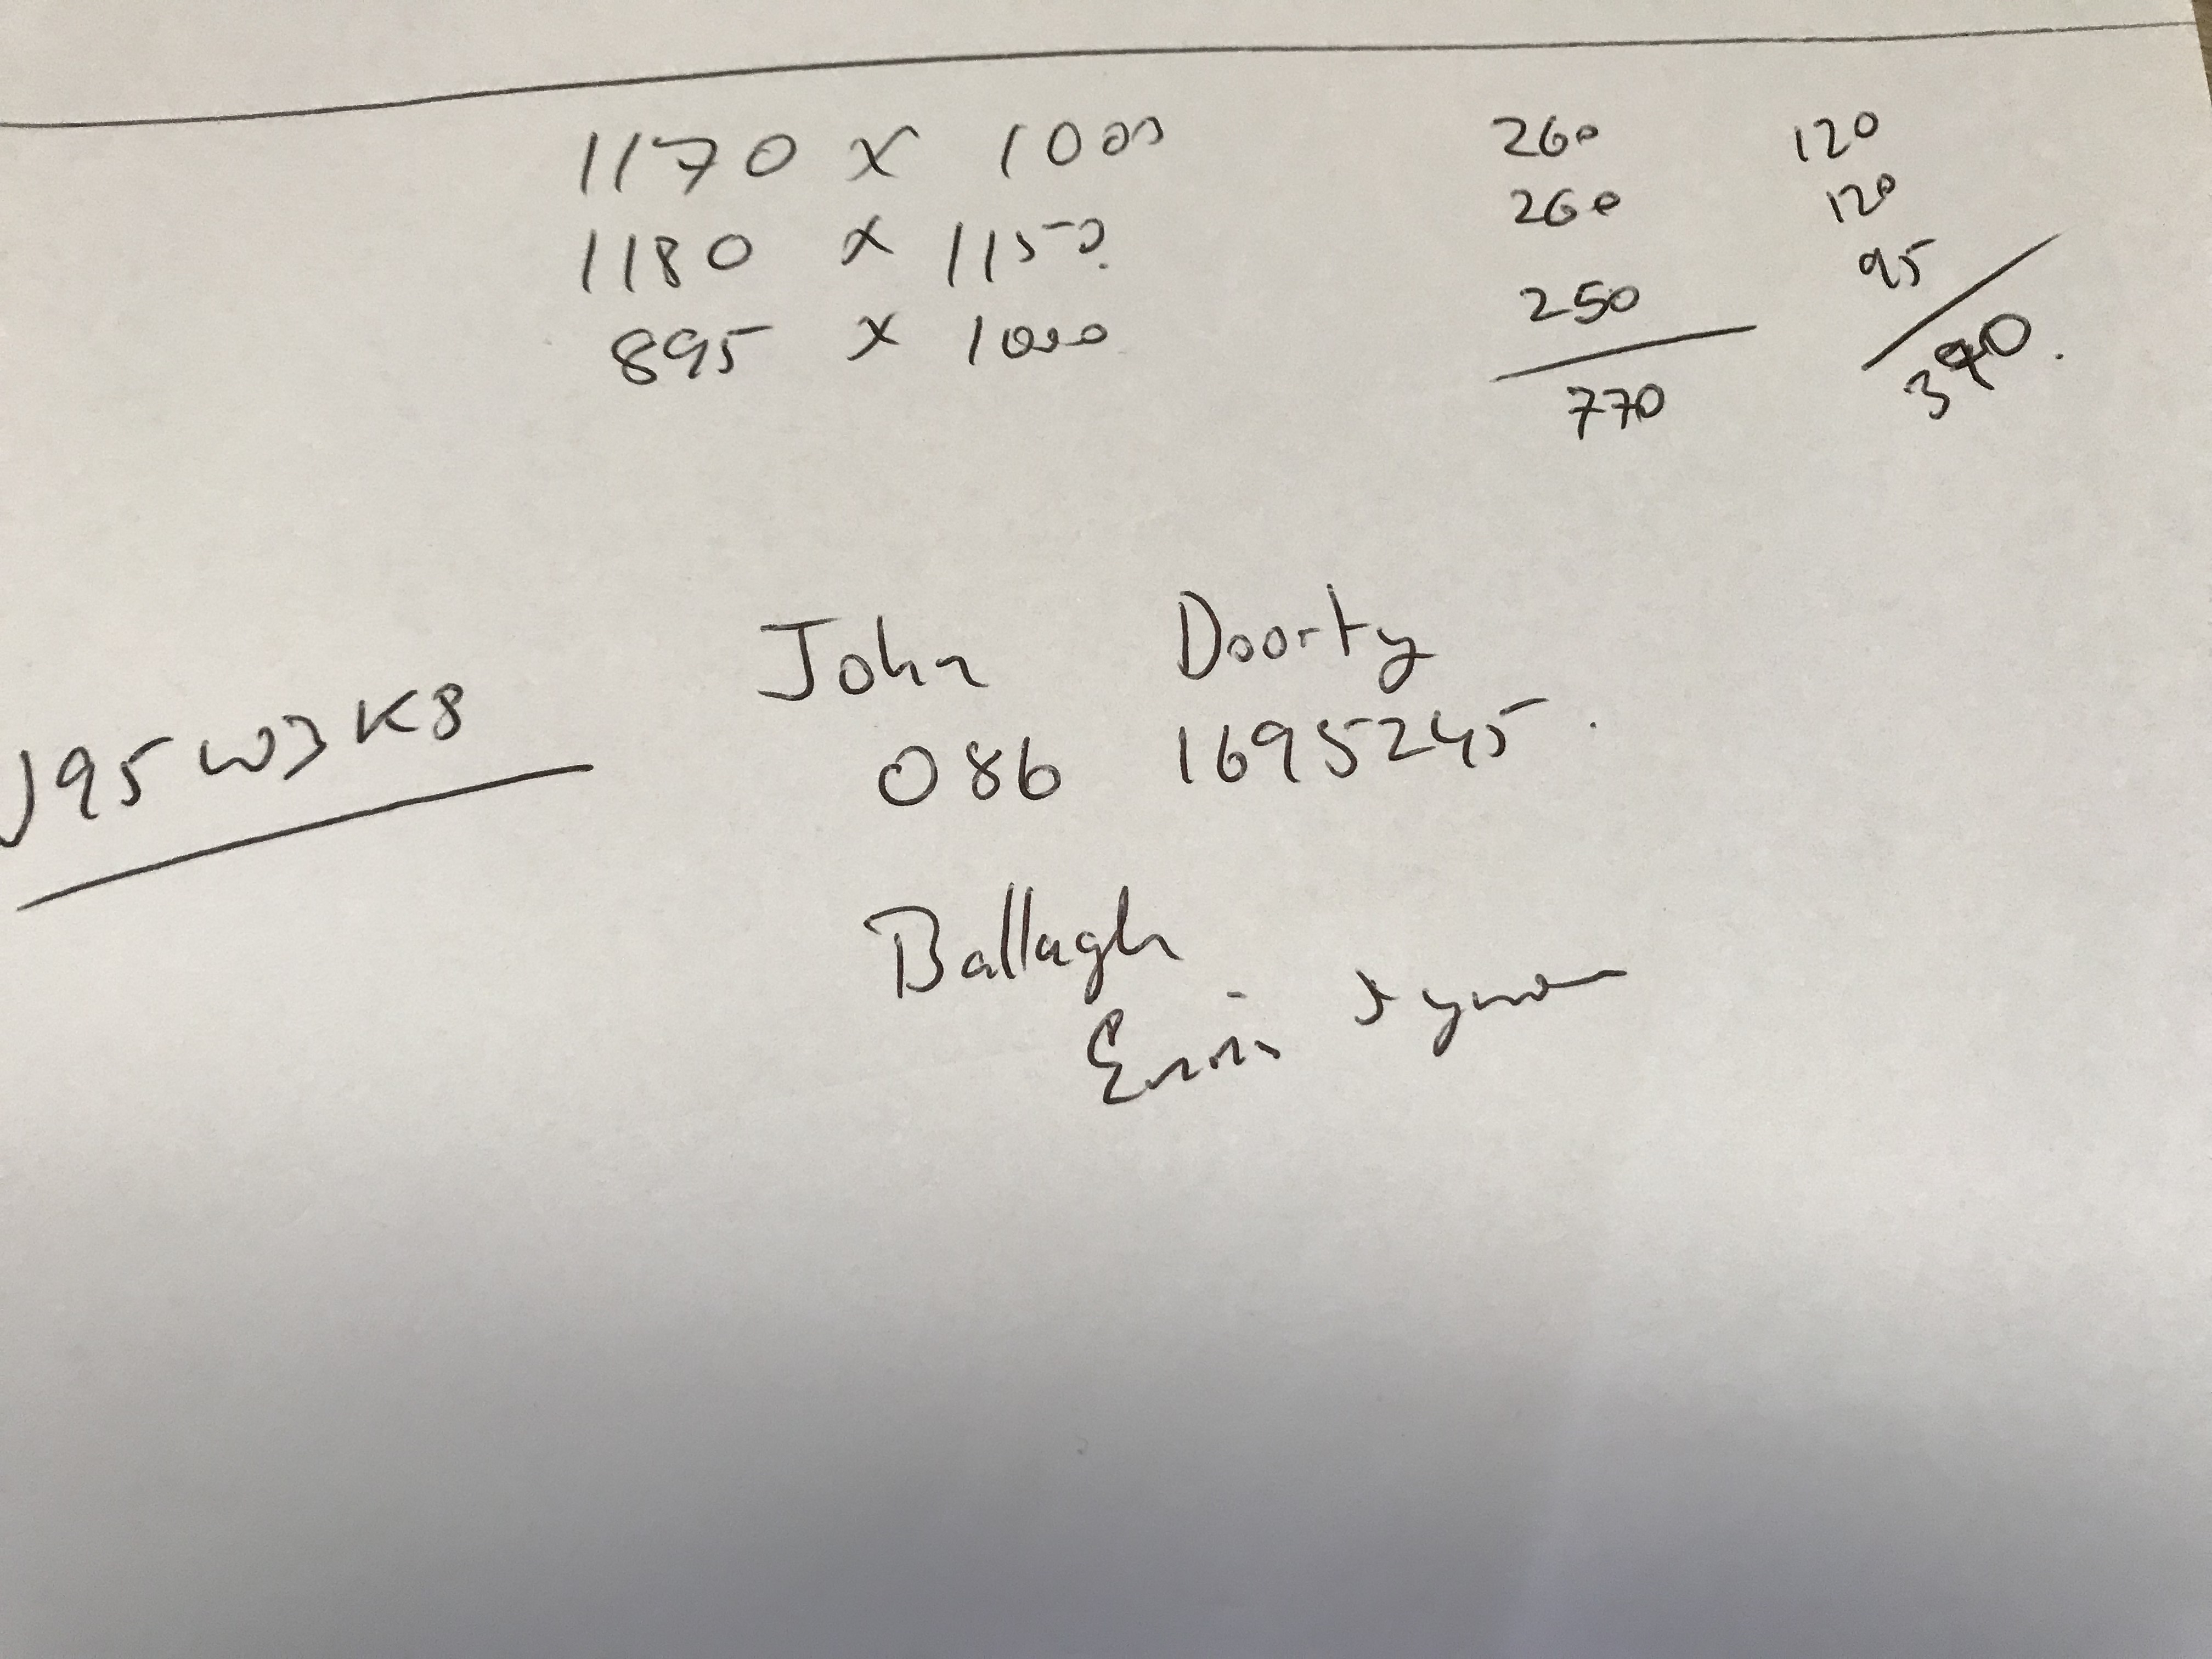 1170 x 1000 260 120
1180 x 1150 260 120
895 x 1000 250 95
770 390.
John Doorty
J95W3K8
086 1695245.
Ballagh
Ennis